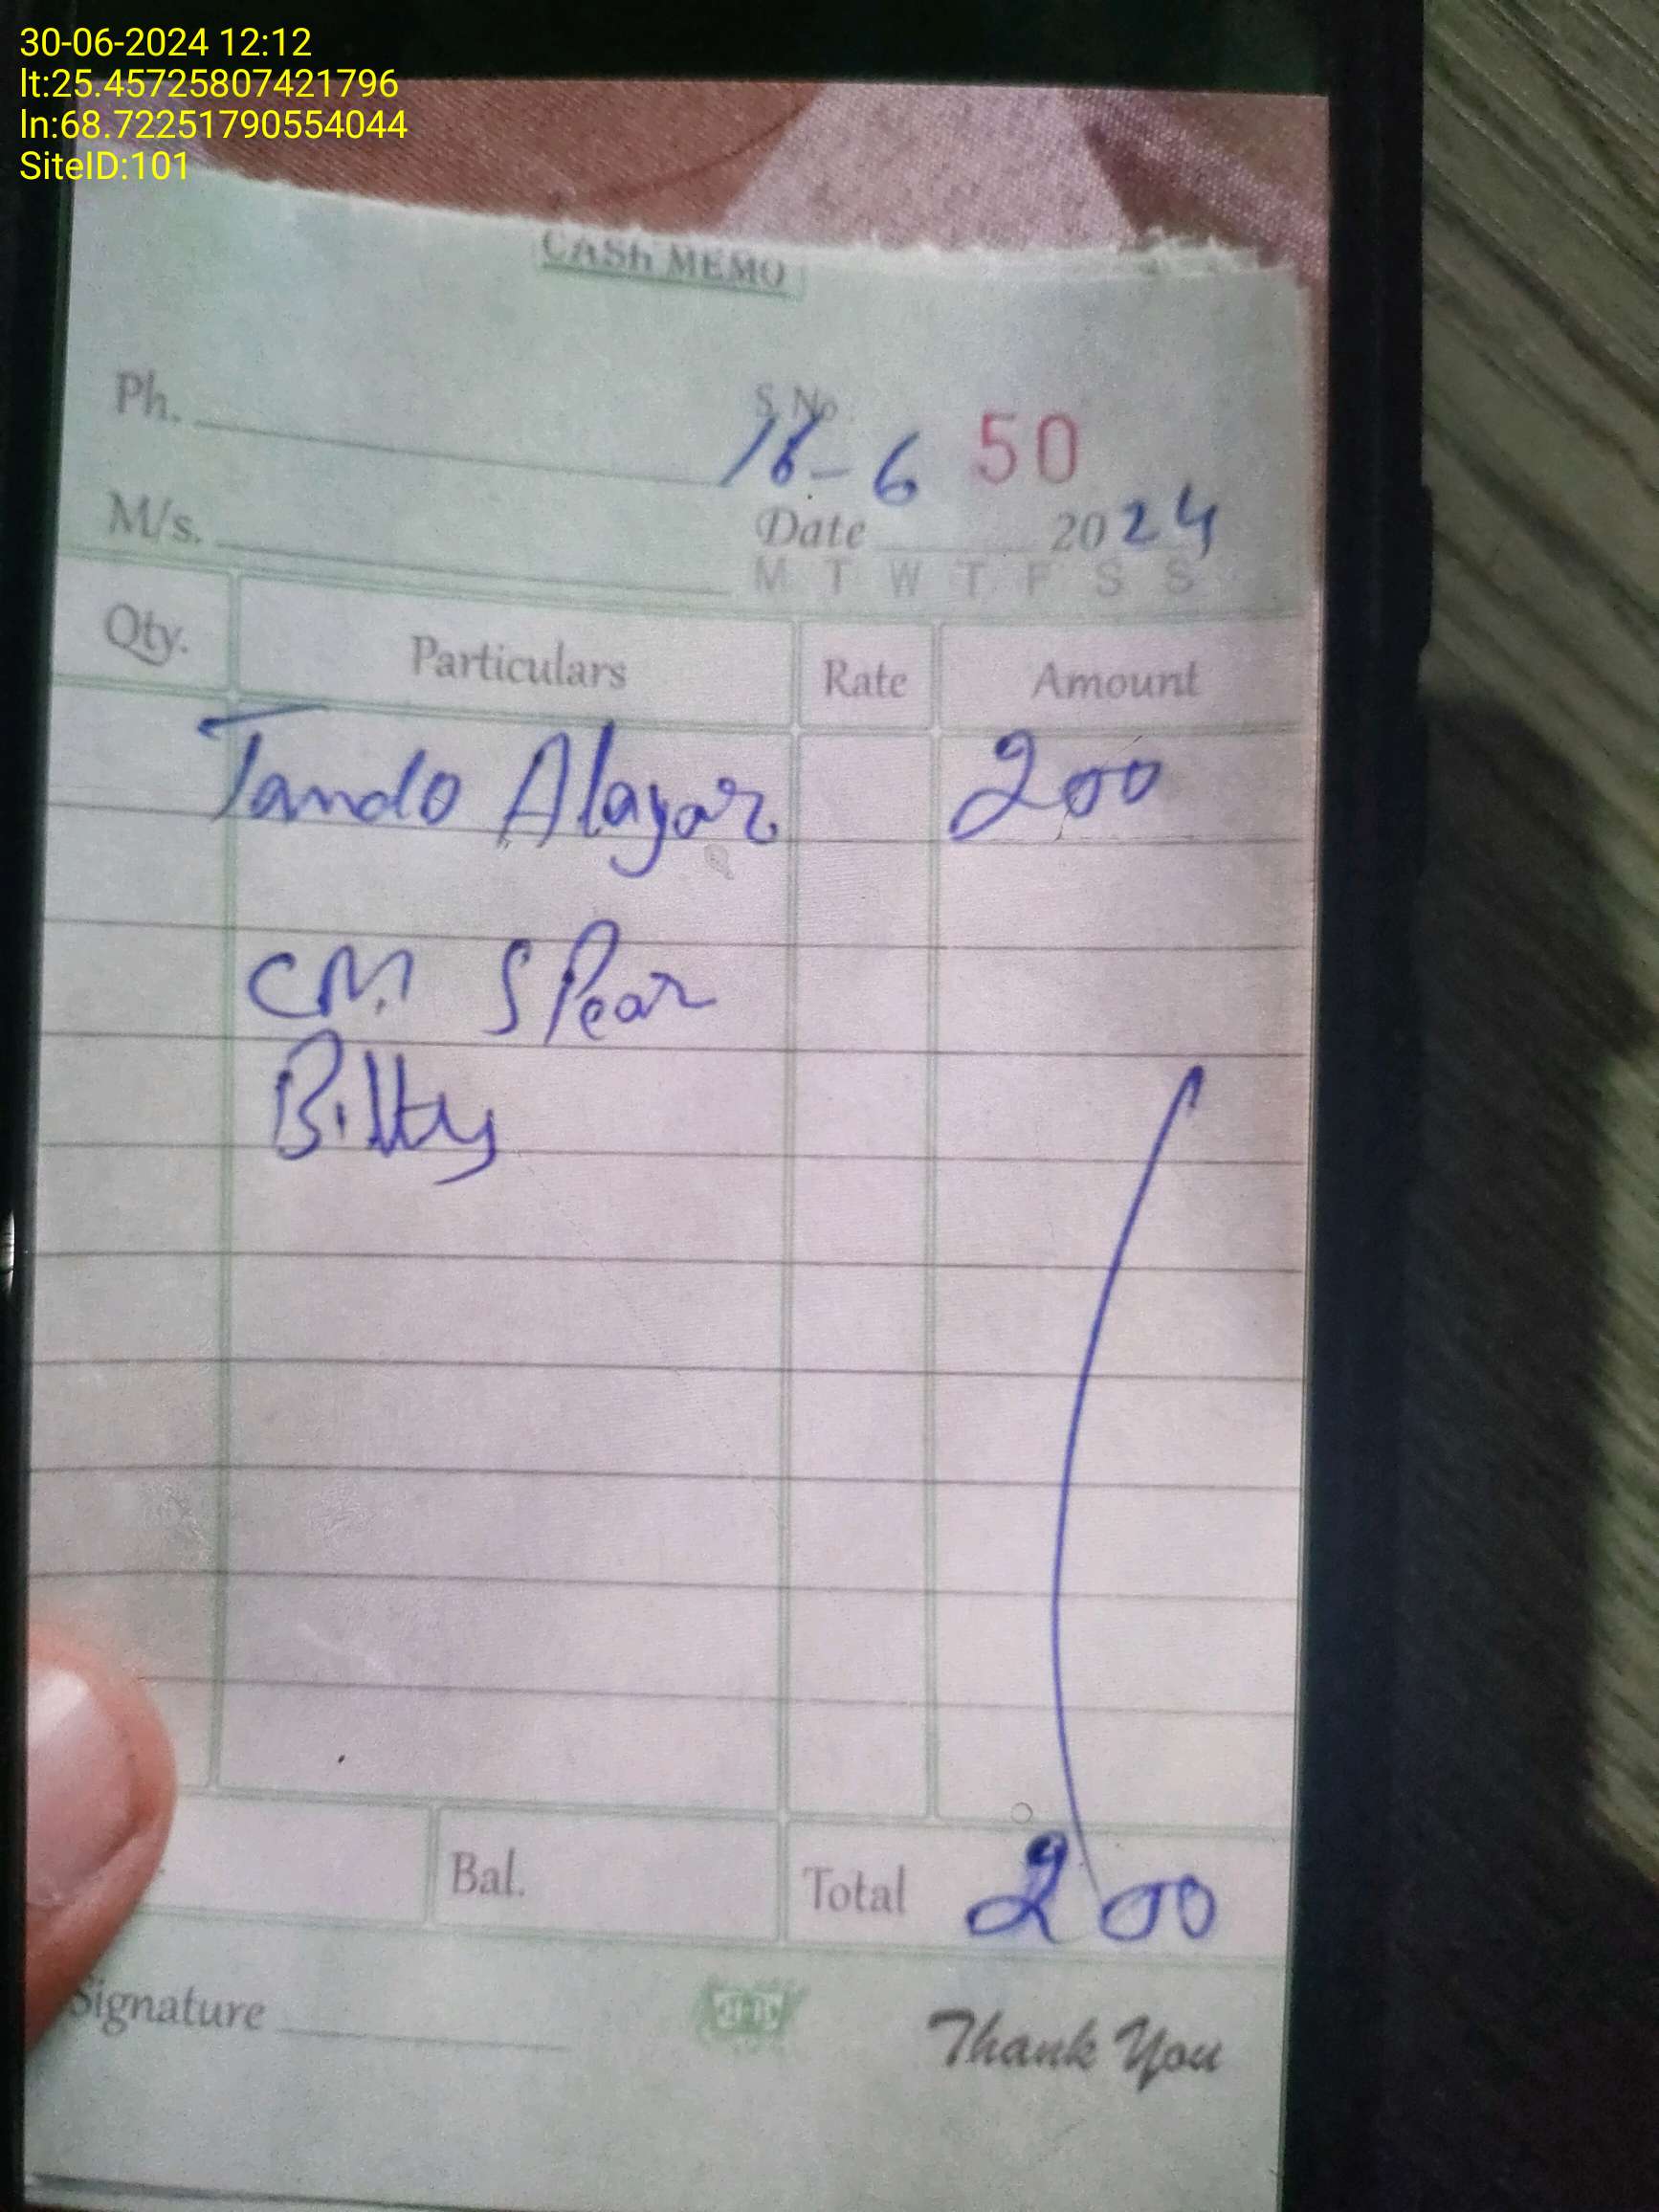 30-06-2024 12:12
lt:25.45725807421796
ln:68.72251790554044
SiteID:101
CASh MEMO
Ph.
S.No. 50
-6
M/s.
Date 2024
M T W T F S S
Qty. Particulars Rate Amount
Tando Alayar 200
CM SPear
Bilty
Bal. Total 200
Signature
Thank You